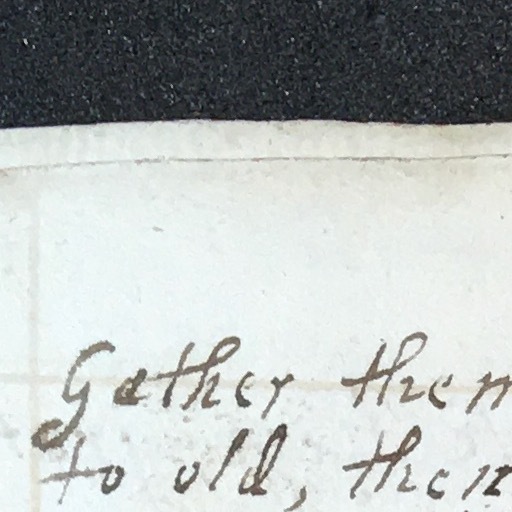 Gather them
to old, then